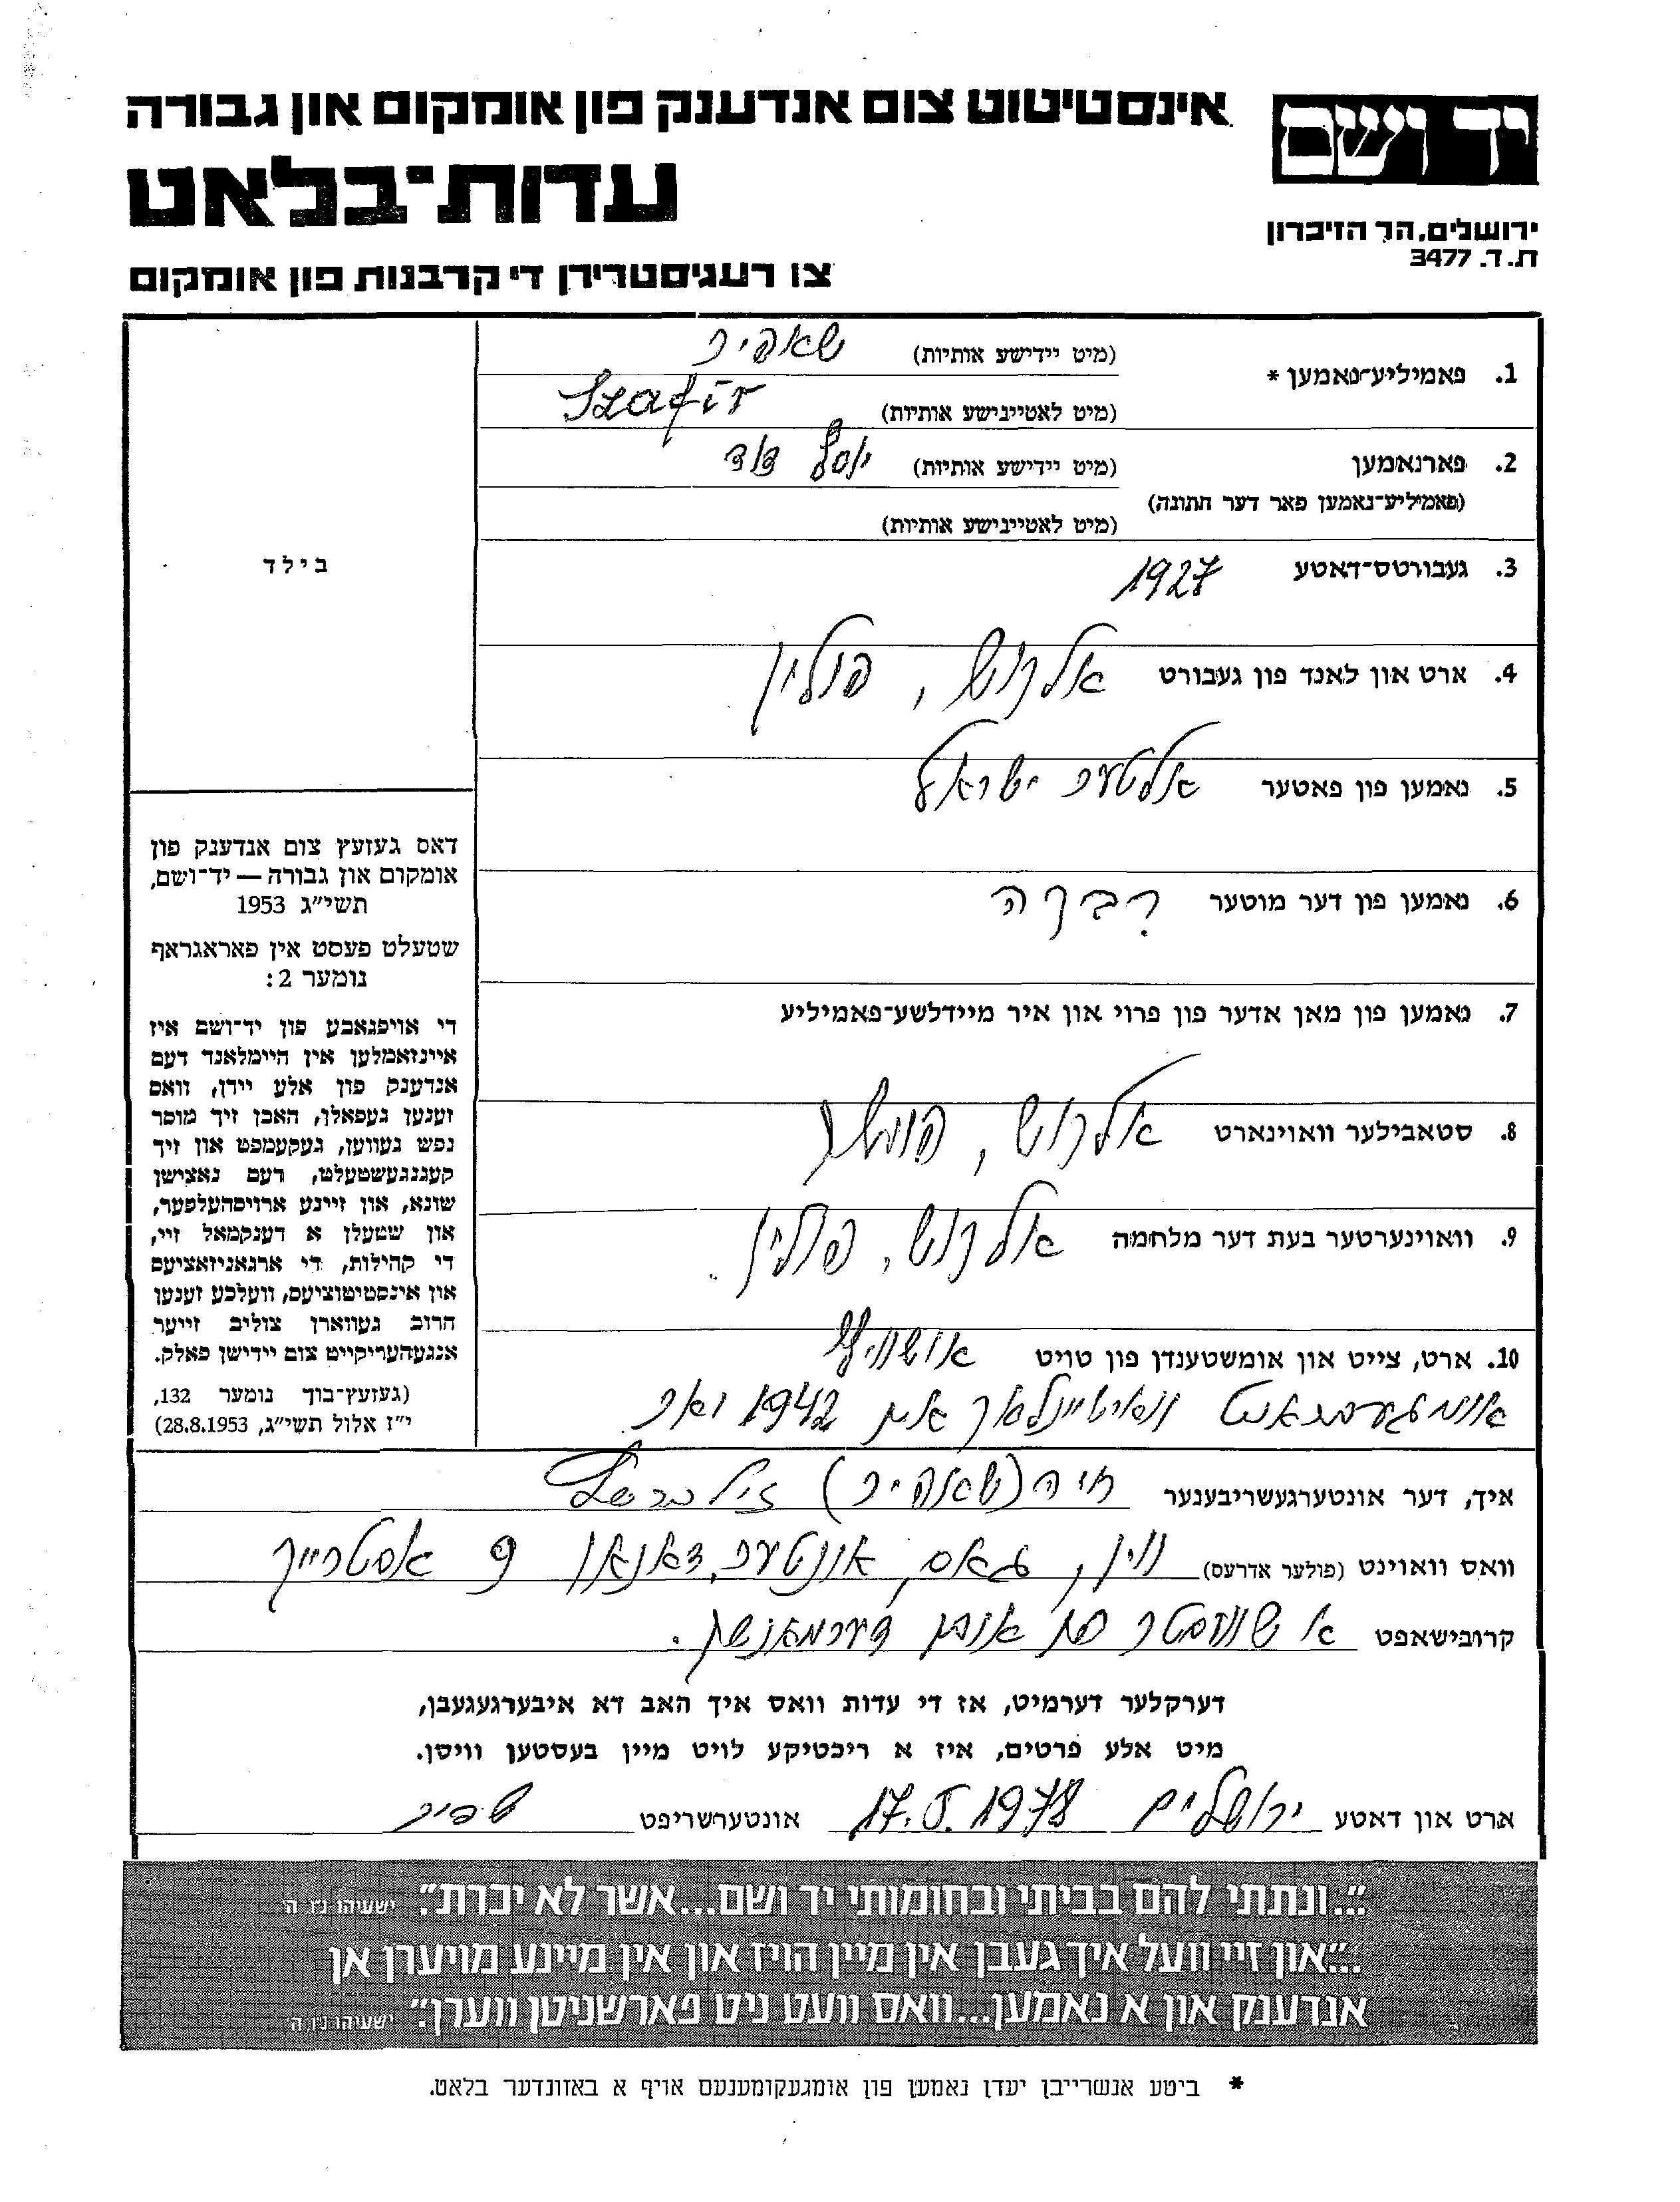 יד ושם
ירושלים, הר הזיכרון
ת. ד. 3477
אינסטיטוט צום אנדענק פון אומקום און גבורה
עדות־בלאט
צו רעגיסטרירן די קרבנות פון אומקום
1. פאמיליע־נאמען * (מיט יידישע אותיות) שאפיר
(מיט לאטיינישע אותיות) Szafir
2. פארנאמען (מיט יידישע אותיות) יוסף דוד
(פאמיליע־נאמען פאר דער חתונה)
(מיט לאטיינישע אותיות)
3. געבורטס־דאטע 1927
4. ארט און לאנד פון געבורט אלקוש, פולין
5. נאמען פון פאטער אלטער ישראל
6. נאמען פון דער מוטער רבקה
7. נאמען פון מאן אדער פון פרוי און איר מיידלשע־פאמיליע
8. סטאבילער וואוינארט אלקוש,
9. וואוינערטער בעת דער מלחמה אלקוש, פולין.
10. ארט, צייט און אומשטענדן פון טויט אושוויץ
אומגעבראכט 1942 יאר.
בילד
דאס געזעץ צום אנדענק פון
אומקום און גבורה — יד־ושם,
תשי״ג 1953
שטעלט פעסט אין פאראגראף
נומער 2:
די אויפגאבע פון יד־ושם איז
איינזאמלען אין היימלאנד דעם
אנדענק פון אלע יידן, וואס
זענען געפאלן, האבן זיך מוסר
נפש געווען, געקעמפט און זיך
קעגנגעשטעלט, דעם נאצישן
שונא, און זיינע ארויסהעלפער,
און שטעלן א דענקמאל זיי,
די קהילות, די ארגאניזאציעס
און אינסטיטוציעס, וועלכע זענען
חרוב געווארן צוליב זייער
אנגעהעריקייט צום יידישן פאלק.
(געזעץ־בוך נומער 132,
י״ז אלול תשי״ג, 28.8.1953)
איך, דער אונטערגעשריבענער חיה (שאפיר)
וואס וואוינט (פולער אדרעס) ווין, גאס, אונטער, דאנאו 9 אסטרייך
קרובישאפט א שוועסטער פון דערמאנטן.
דערקלער דערמיט, אז די עדות וואס איך האב דא איבערגעגעבן,
מיט אלע פרטים, איז א ריכטיקע לויט מיין בעסטען וויסן.
ארט און דאטע ירושלים 17.5.1978 אונטערשריפט שפיר
״...ונתתי להם בביתי ובחומותי יד ושם...אשר לא יכרת״. ישעיהו נ״ו ה
...״און זיי וועל איך געבן אין מיין הויז און אין מיינע מויערן אן
אנדענק און א נאמען...וואס וועט ניט פארשניטן ווערן״. ישעיהו נ״ו ה
* ביטע אנשרייבן יעדן נאמען פון אומגעקומענעם אויף א באזונדער בלאט.